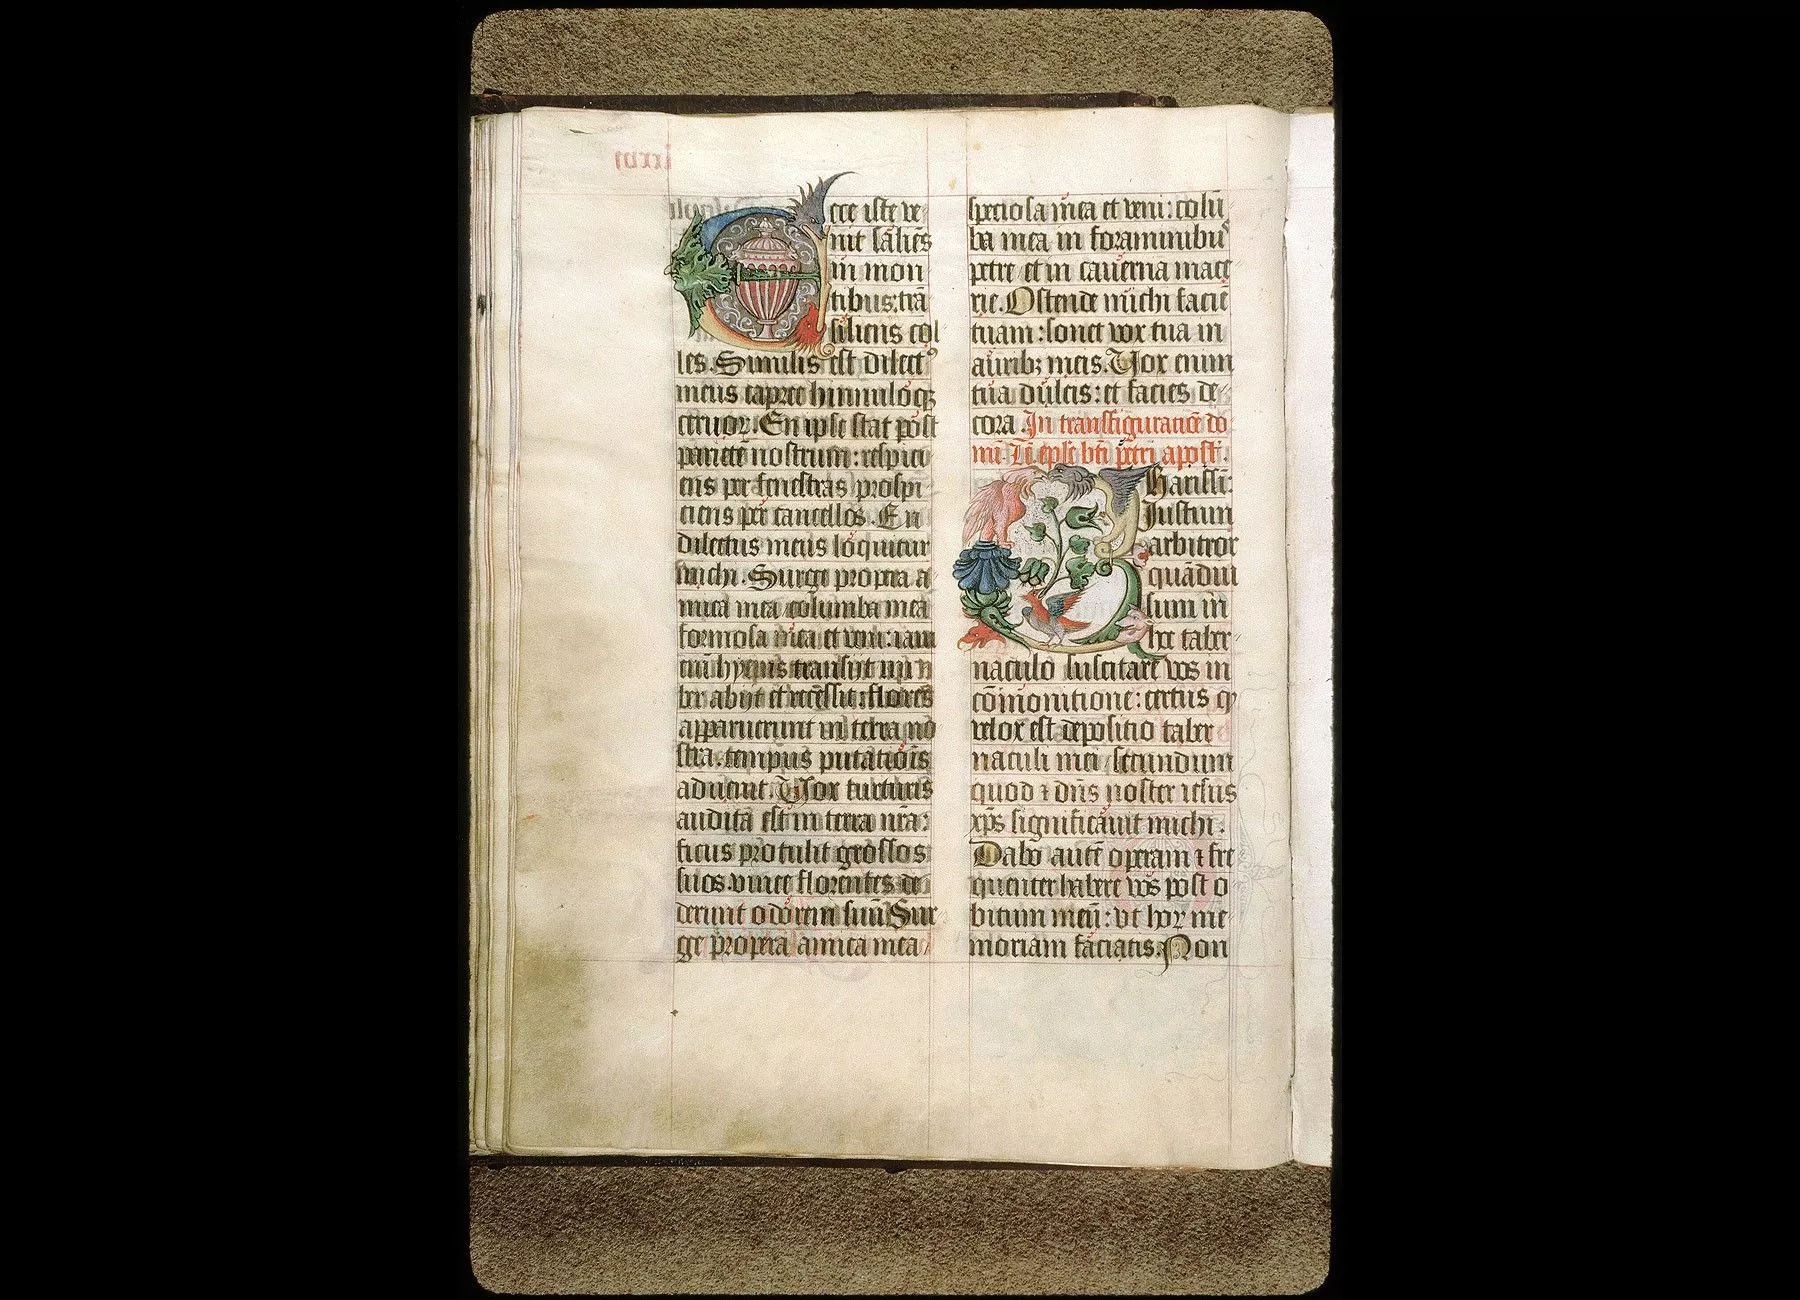 Ecce iste ve
nit saliēs
in mon
tibus: trā
siliens col
les. Similis est dilectꝰ
meus capree hinnuloqꝫ
ceruoꝝ. En ipse stat post
parietē nostrum: respici
ens per fenestras prospi
ciens per cancellos. En
dilectus meus loquitur
michi. Surge propera a
mica mea columba mea
formosa mea et veni: iam
eni hyems transijt im
ber abijt et recessit: flores
apparuerunt in terra no
stra. tempus putatiōis
aduenit. Vox turturis
audita est in terra nr̄a:
ficus protulit grossos
suos. vinee florentes de
derunt odorem suū Sur
ge propera amica mea
speciosa mea et veni: colū
ba mea in foraminibuꝰ
petre et in cauerna mace
rie. Ostende michi faciē
tuam: sonet vox tua in
auribꝫ meis. Vox enim
tua dulcis: et facies de
cora. In transfiguratiōe do
mini Lc̄ eple bt̄i petri apost̄.
Karissi:
Iustum
arbitror
quādiu
sum in
hoc taber
naculo suscitare vos in
cōmonitione: certus ꝙ
velox est depositio taber
naculi mei secundum
quod ⁊ dn̄s noster iesus
xp̄s significauit michi.
Dabo autē operam ⁊ fre
quenter habere vos post o
bitum meū: vt hoꝝ me
moriam faciatis. Non